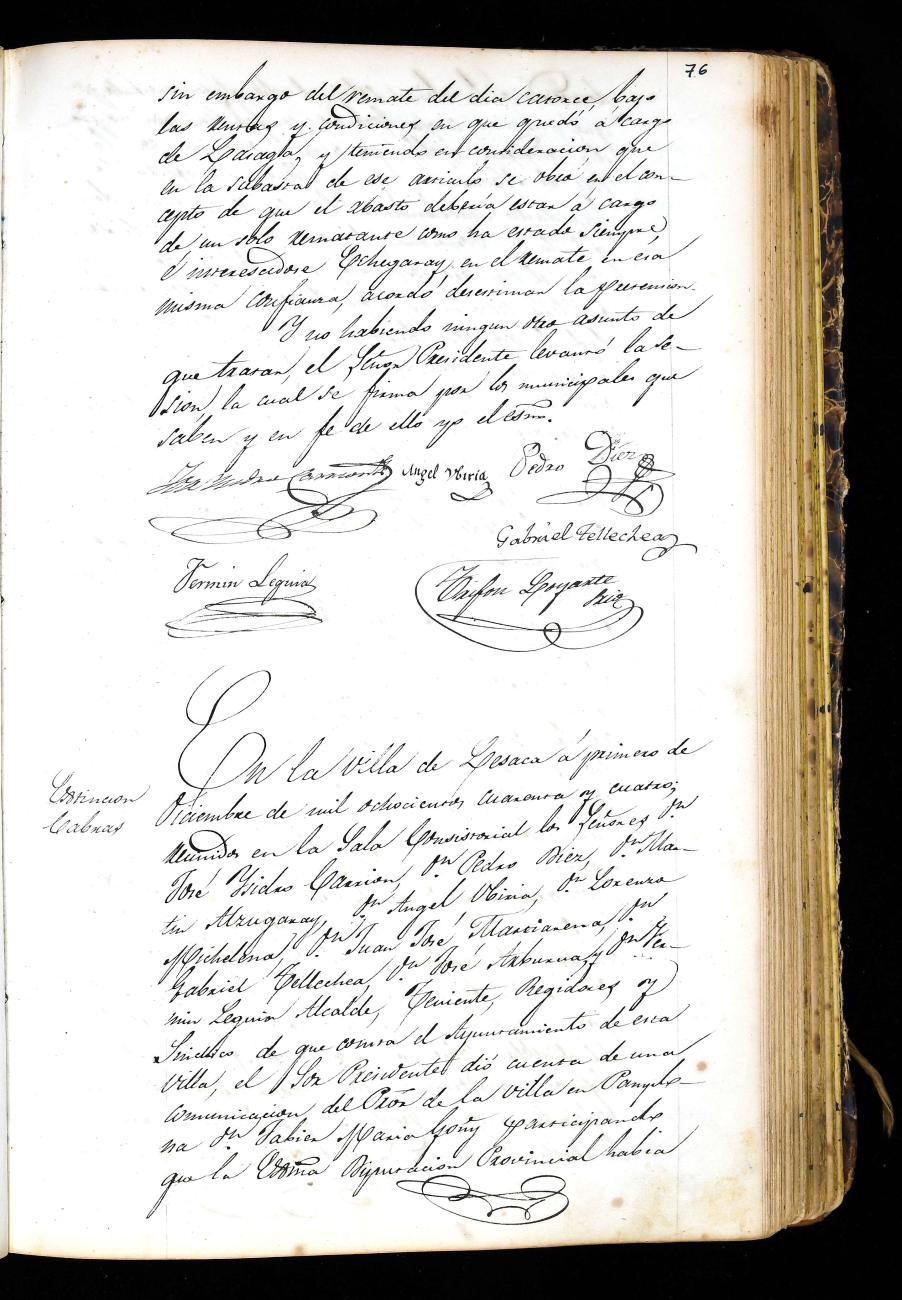 76
sin embargo del remate del dia catorce, bajo
las rentas y condiciones en que quedó á cargo
de y teniendo en consideracion que
en la subasta de ese articulo se obró en el con-
cepto de que el abasto deberia estar á cargo
de un solo rematante como ha estado siempre,
é interesadose Echegaray en el remate en esa
misma confianza, acordó desestimar la pretension.
Y no habiendo ningun otro asunto de
que tratar, el Señor Presidente levantó la se-
sion, la cual se firma por los municipales que
saben y en fe de ello yo el essno.
José Ysidro Carrion Angel Ubiria Pedro Diez
Gabriel Tellechea
Fermin Leguia
Trifon Loyarte
Srio
Estincion
Cabras
En la Villa de Lesaca á primero de
Diciembre de mil ochocientos cuarenta y cuatro;
reunidos en la Sala Consistorial los Señores Dn
José Ysidro Carrion, Dn Pedro Diez, Dn Mar-
tin Alzugaray, Dn Angel Ubiria, Dn Lorenzo
Michelena, Dn Juan José Marciarena, Dn
Gabriel Tellechea, Dn José Arburua y Dn Fer-
min Leguia Alcalde, Teniente, Regidores y
Sindico de que consta el Ayuntamiento de esta
Villa, el Sor Presidente dió cuenta de una
comunicacion del Pror de la Villa en Pamplo-
na Dn Fabier Maria Goñy participando
que la Exma Diputacion Provincial habia